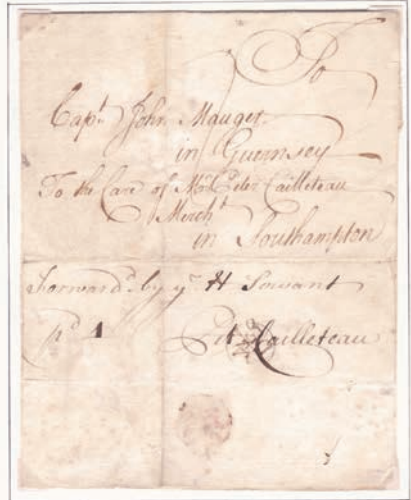 To
Capt. John Mauger
in Guernsey
To the Care of Mr. Peter Cailleteau
Mercht
in Southampton
Forward'd by yr H Servant
pd 1
Pet Cailleteau